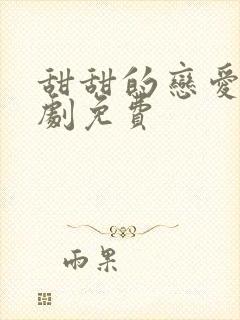 甜甜的戀愛
劇免費
雨果